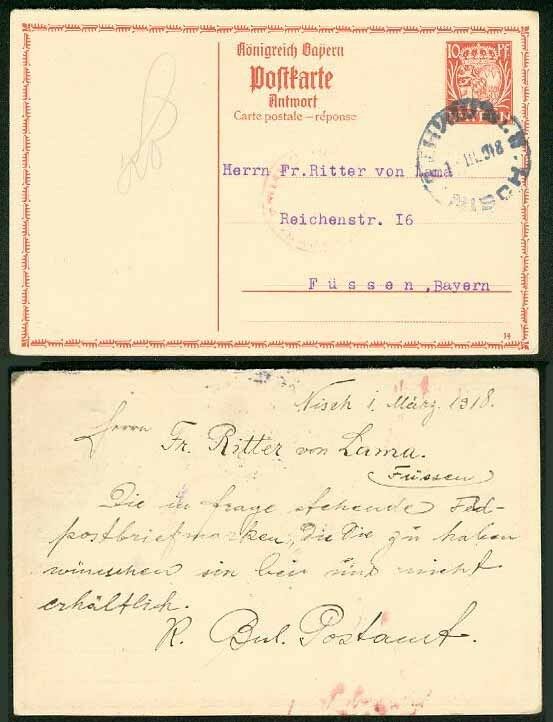 Königreich Bayern
10 PF
Postkarte
Antwort
Carte postale – réponse
1. III. 918
Herrn Fr.Ritter von Lama
Reichenstr. I6
Füssen ,Bayern
14
Nisch 1. März 1918.
Herrn
Fr. Ritter von Lama.
Füssen
Die in frage stehende Fed-
postbriefmarken, die Sie zu haben
wünschen sin bei uns nicht
erhältlich.
K. Bul. Postamt.